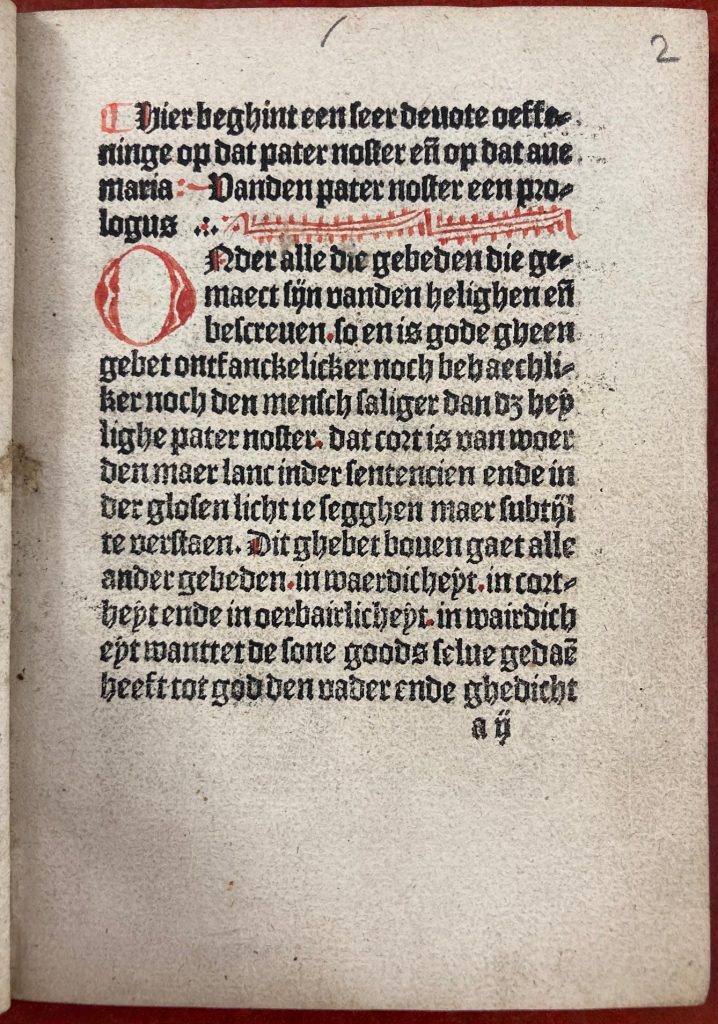 2
¶ Hier beghint een seer deuote oeffe-
ninge op dat pater noster eñ op dat aue
maria :~ Vanden pater noster een pro-
logus .:.
ONder alle die gebeden die ge-
maect sijn vanden helighen eñ
bescreuen. so en is gode gheen
gebet ontfanckelicker noch behaechli-
ker noch den mensch saliger dan dz hey
lighe pater noster. dat cort is van woer
den maer lanc inder sentencien ende in
der glosen licht te segghen maer subtijl
te verstaen. Dit ghebet bouen gaet alle
ander gebeden. in waerdicheyt. in cort-
heyt ende in oerbairlicheyt. in wairdich
eyt wanttet de sone goods selue gedaē
heeft tot god den vader ende ghedicht
a ij